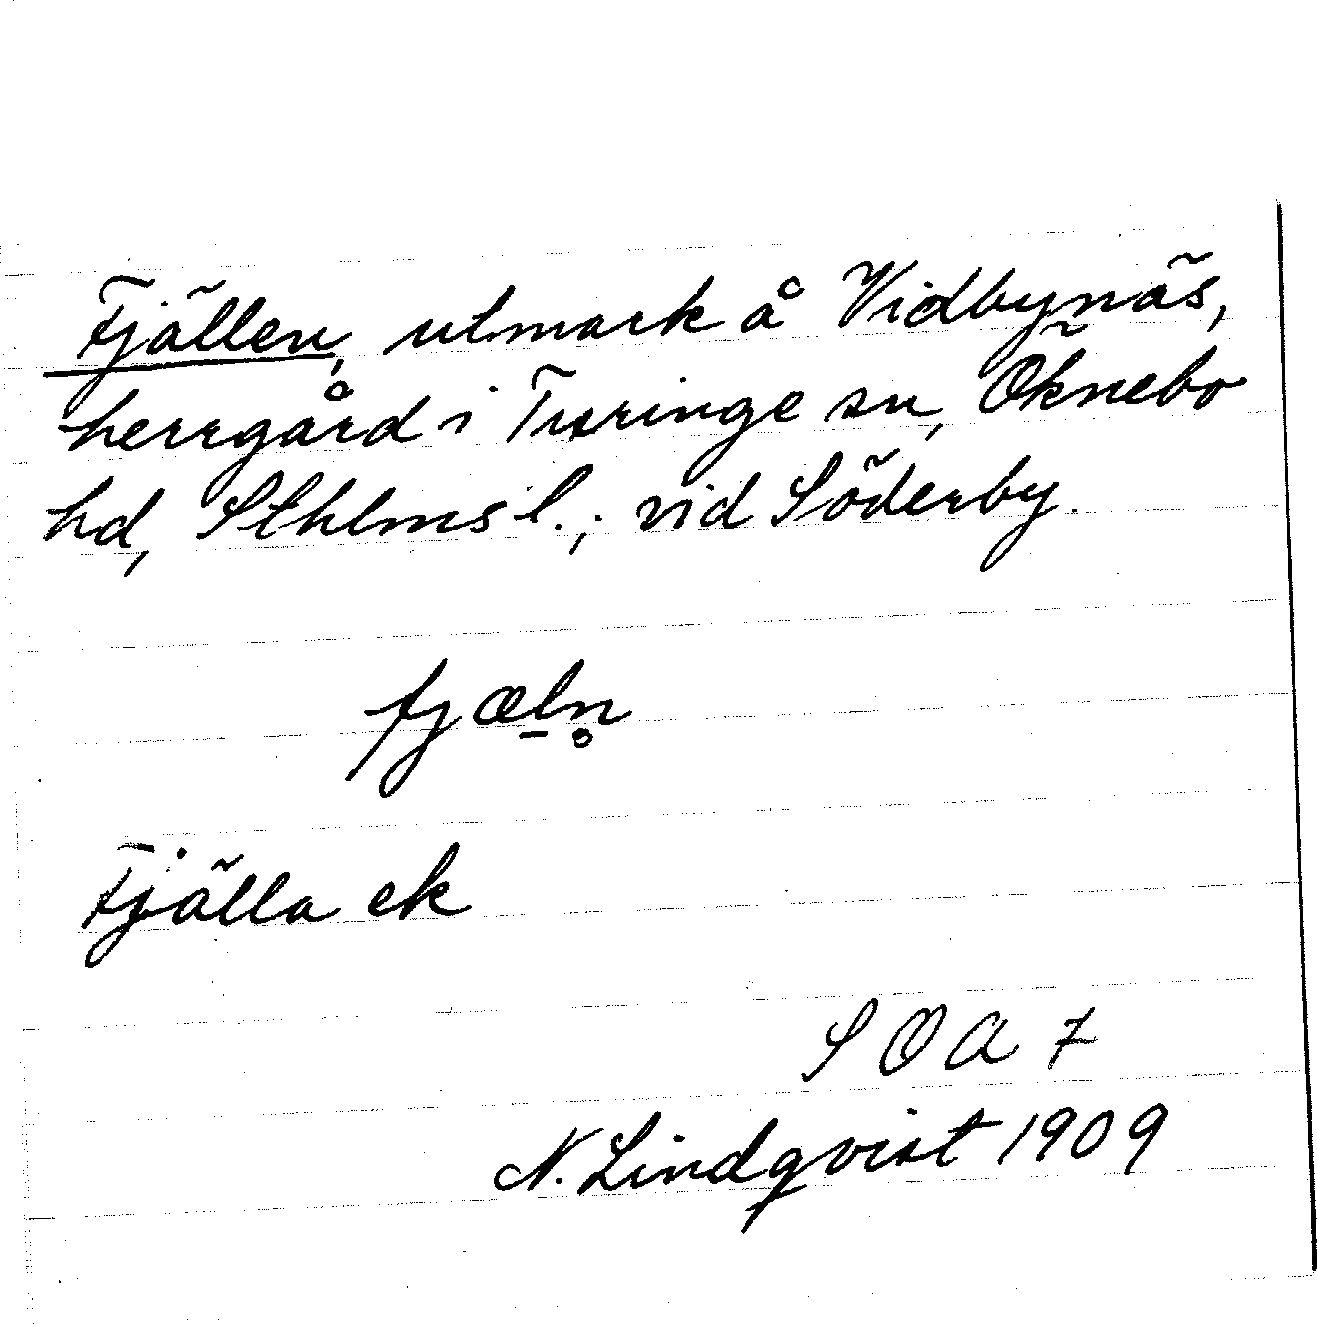 Fjällen, utmark å Vidbynäs,
herrgård i Turinge sn, Öknebo
hd, Sthlms l.; vid Söderby.
fjæl̠n̥
Fjälla ek
SOA 7
N. Lindqvist 1909